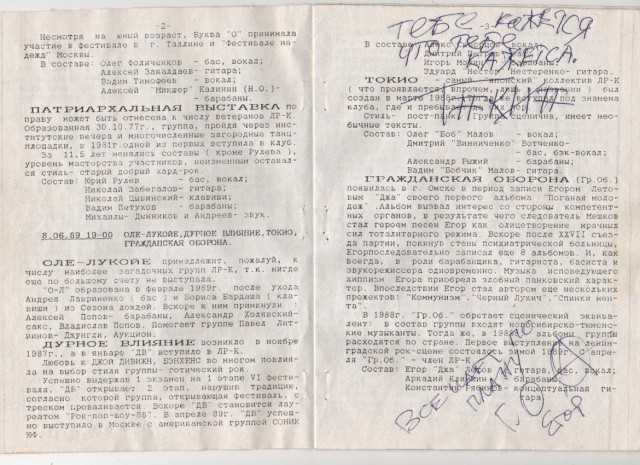 -2-
Несмотря на юный возраст, Буква "О" принимала
участие в фестивале в г. Таллине и "Фестивале на-
дежд" Москвы.
В составе: Олег Фоличенков - бас, вокал;
Алексей Закалдаев- гитара;
Вадим Тимофеев - вокал;
Алексей "Микшер" Калинин (Н.О.)-
- барабаны.
ПАТРИАРХАЛЬНАЯ ВЫСТАВКА по
праву может быть отнесена к числу ветеранов ЛР-К.
Образованная 30.10.77г., группа, пройдя через ин-
ститутские вечера и многочисленные загородные танц-
площадки, в 1981г.одной из первых вступила в клуб.
За 11,5 лет менялись составы ( кроме Рулева) ,
уровень мастерства участников, неизменным оставал-
ся стиль- старый добрый хард-рок.
Состав: Юрий Рулев - бас, вокал;
Николай Забегалов- гитара;
Николай Цывинский-клавиши;
Вадим Петухов - барабаны;
Михаилы- Дынников и Андреев- звук.
8.06.89 19-00 ОЛЕ-ЛУКОЙЕ,ДУРНОЕ ВЛИЯНИЕ,ТОКИО,
ГРАЖДАНСКАЯ ОБОРОНА.
ОЛЕ-ЛУКОЙЕ принадлежит, пожалуй, к
числу наиболее загадочных групп ЛР-К, т.к. нигде
еще по большому счету не выступала.
"О-Л" образована в феврале 1989г. после ухода
Андрея Лавриненко ( бас ) и Бориса Бардаша ( кла-
виши ) из Сезона дождей. Вскоре к ним примкнули :
Алексей Попов- барабаны, Александр Холявский-
сакс, Владислав Попов. Помогает группе Павел Лит-
винов- Джунгли, Аукцион.
ДУРНОЕ ВЛИЯНИЕ возникло в ноябре
1987г., а в январе "ДВ" вступило в ЛР-К.
Любовь к ДЖОЙ ДИВИЖН, БЭНХЕНС во многом повлия-
ла на выбор стиля группы- готический рок.
Успешно выдержав 1 экзамен на 1 этапе VI фести-
валя, "ДВ" открывают 2 этап, нарушив традицию,
согласно которой группа, открывающая фестиваль, с
треском проваливается. Вскоре "ДВ" становится лау-
реатом "Рок-поп-шоу-88". В апреле 89г. "ДВ" успеш-
но выступило в Москве с американской группой СОНИК
ЮФ.
-3-
ТЕБЕ КАЖЕТСЯ
ЧТО ТЕБЕ
КАЖЕТСЯ.
В составе:
вокал;
Дмитрий
Игорь
барабаны;
Эдуард "Нестор"Нестеренко- гитара.
ТОКИО - самый японский коллектив ЛР-К
( что проявляется впрочем, лишь в
) был
создан в марте 1988г.
под знамена
клуба, где и пребывает
Стиль- пост-панк. Группа сценична, имеет нео-
бычные тексты.
Состав: Олег "Боб" Малов - вокал;
Дмитрий "Винниченко" Вотченко-
- бас, бэк-вокал;
Александр Рыжий - барабаны;
Вадим "Бобчик" Малов- гитара.
ГРАЖДАНСКАЯ ОБОРОНА (Гр.Об.)
появилась в г. Омске в период записи Егором Лето-
вым "Джа" своего первого альбома "Поганая моло-
дежь" .Альбом вызвал интерес со стороны компетент-
ных органов, в результате чего следователь Мешков
стал героем песен Егора как олицетворение мрачных
сил тоталитарного режима. Вскоре после XXVII съез-
да партии, покинув стены психиатрической больницы,
Егорпоследовательно записал еще 8 альбомов. И, как
всегда, в роли барабанщика, гитариста, басиста и
звукорежиссера одновременно. Музыка исповедующего
хиппизм Егора приобрела злобный панковский харак-
тер. Впоследствии Егор стал автором еще нескольких
прожектов: "Коммунизм","Черный Лукич","Спинки мен-
та".
В 1988г. "Гр.Об." обретает сценический эквива-
лент: в состав группы входят новосибирско-тюменс-
кие музыканты. Тогда же, в 1988г
альбомы группы
расходятся по стране. Первое выступление на ленин-
градской рок-сцене состоялось зимой 1989г.
апре-
ля "Гр.Об." - член ЛР-К.
Состав: Егор "Джа" Летов -гитара, вокал;
Аркадий Климкин - барабаны;
Константин Рябинов- концептуальная ги-
тара.
ВСЁ ИДЁТ ПО
ПЛАНУ
ЕГОР